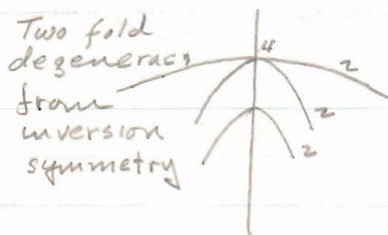 Two fold
degeneracy
from
inversion
symmetry
4
2
2
2